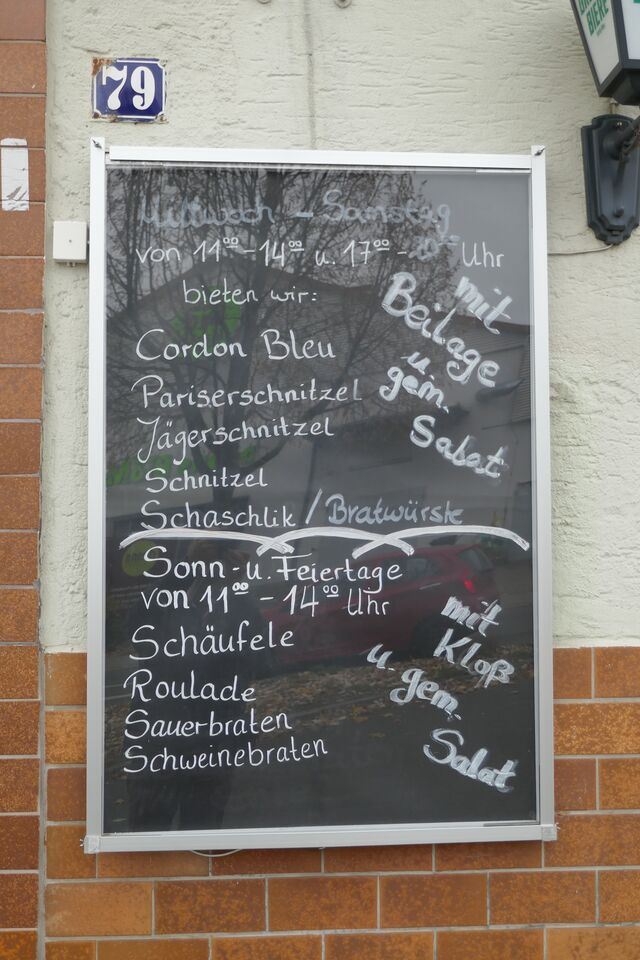 79
BIERE
Mittwoch - Samstag
von 11⁰⁰ - 14⁰⁰ u. 17⁰⁰ - 20⁰⁰ Uhr
bieten wir:
Cordon Bleu
Pariserschnitzel
Jägerschnitzel
Schnitzel
Schaschlik / Bratwürste
mit
Beilage
u.
gem.
Salat
Sonn- u. Feiertage
von 11⁰⁰ - 14⁰⁰ Uhr
Schäufele
Roulade
Sauerbraten
Schweinebraten
mit
Kloß
u. gem.
Salat